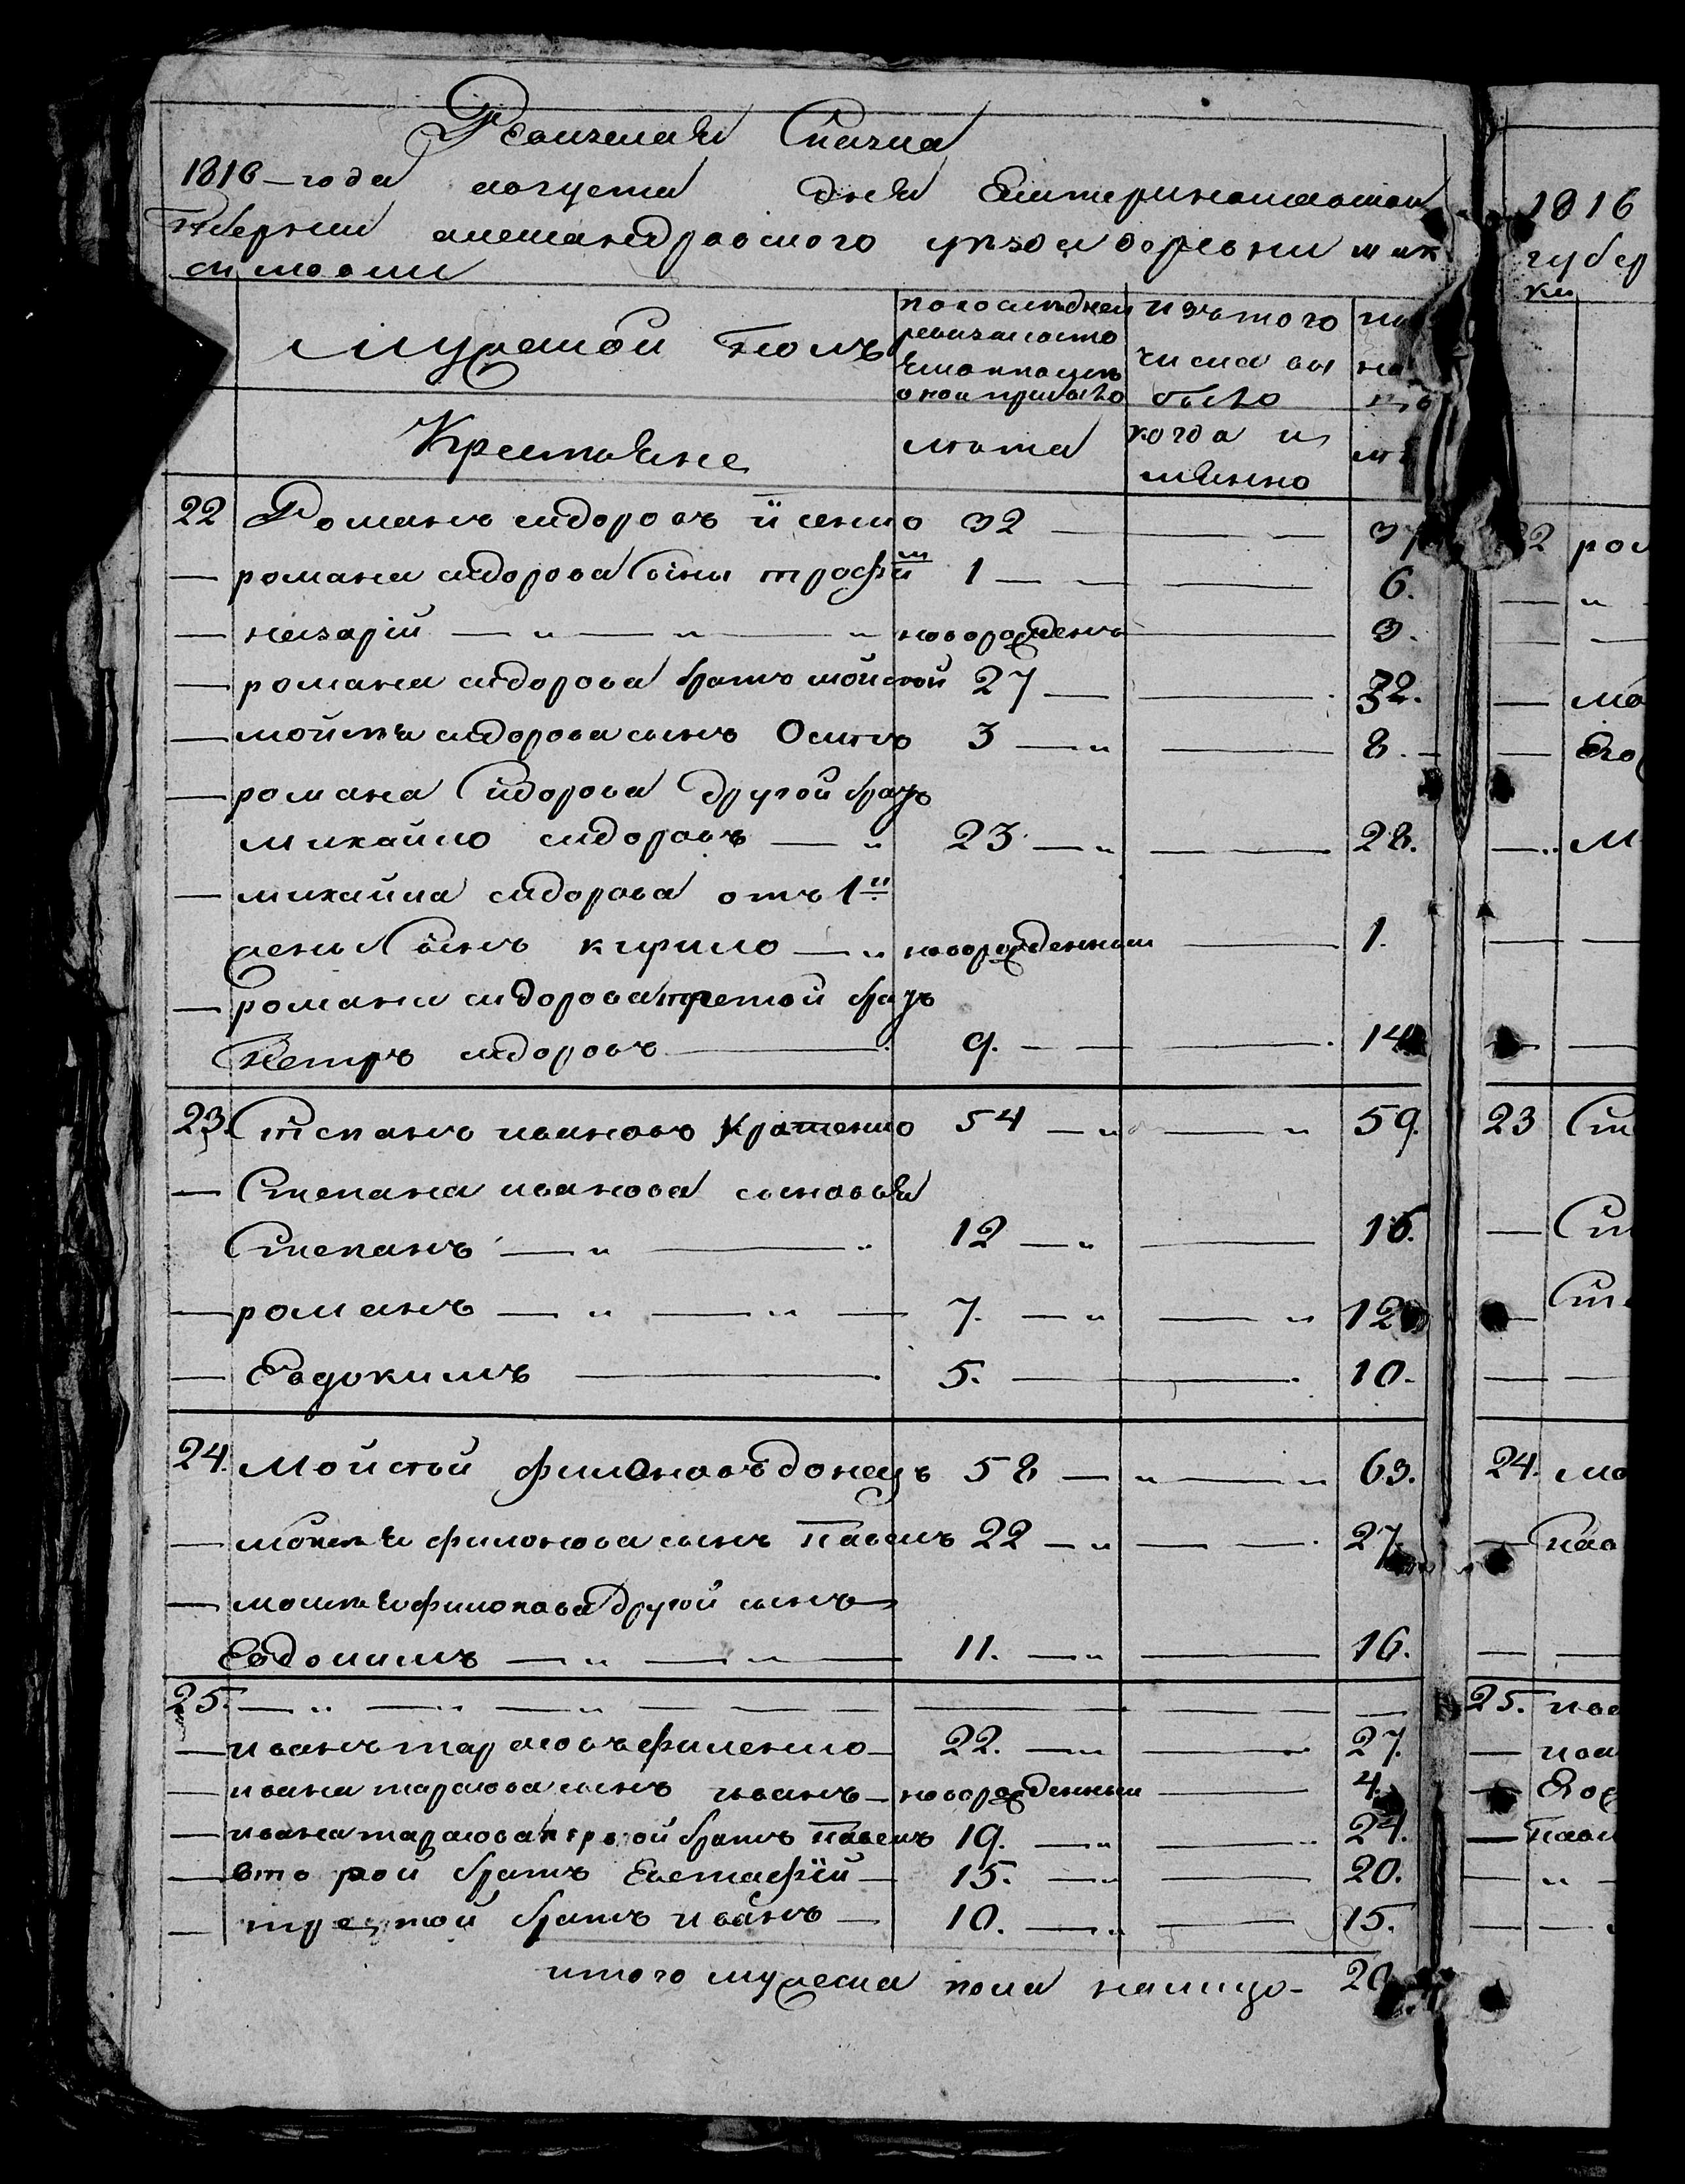 Ревизская Сказка
1816 – года августа дня Екатеринославской
Губернии александровского уезда деревни мак
симовки
Мужеской Полъ
по последней
ревизии состо
яло и после
оной прибыло
изъ того
числа вы
было
Крестьяне
лѣта
когда и
мянно
22 Романъ сидоровъ 32 — — 37
— романа сидорова сынъ трофим 1 — — 6.
— назарій — " — " — " новорожденъ — 3.
— романа сидорова братъ мойсей 27 — — 32.
— мойсея сидорова сынъ Осипъ 3 — " — 8.
— романа Сидорова другой братъ
михайло сидоровъ — " 23 — " — 28.
— михайла сидорова отъ 1й
жены Сынъ кирило — " новорожденный — 1.
— романа сидорова третой братъ
Петръ сидоровъ — 9. — — 14
23. Степанъ ивановъ 54 — " — " 59.
— Степана иванова сыновья
Степанъ — " — " 12 — " — 16.
— романъ — " — " — 7. — " — " 12
— Евдокимъ — 5. — — 10.
24. Мойсей филоновъ донецъ 58 — " — " 63.
— мойсея филонова сынъ Павелъ 22 — " — — 27.
— мойсея филонова другой сынъ
Евдокимъ — " — " — 11. — " — 16.
25. — " — " — " — — —
— иванъ тарасовъ филенко — 22. — — 27.
— ивана тарасова сынъ иванъ — новорожденный — 4.
— ивана тарасова первой братъ Павелъ 19. — " — 24.
— второй братъ Евстафій — 15. — " — 20.
— третой братъ иванъ — 10. — " — 15.
итого мужеска пола налицо – 20
1816
губер
ки
22 ром
— "
— мо
— Его
— М
23 Сте
— Сте
Сте
24. мо
— пав
25. ива
— ива
— Павл